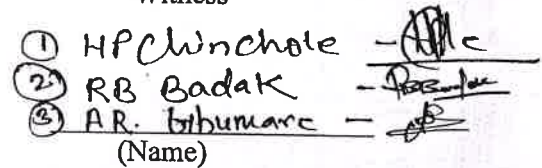 Witness
① HP Chinchole -
② RB Badak - RBBadak
③ AR. -
(Name)